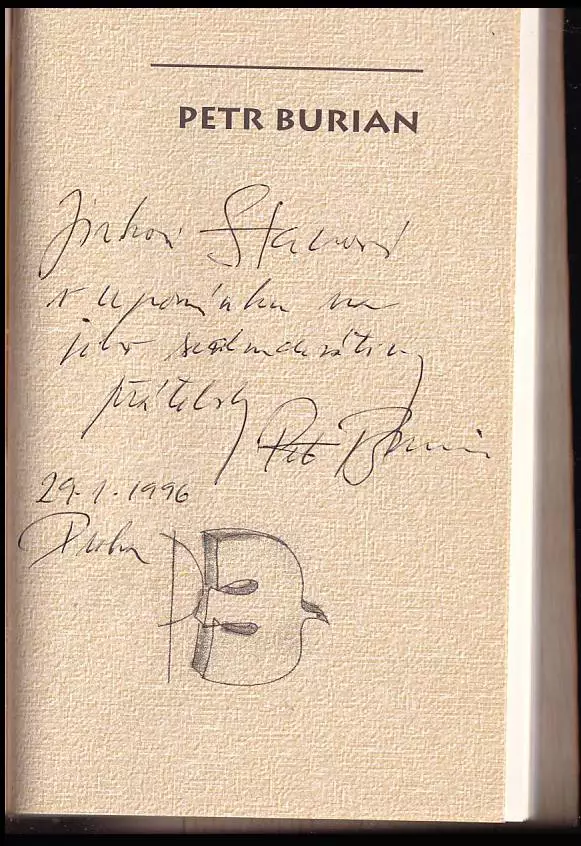 PETR BURIAN
Jirkovi
v upomínku na
jeho sedmdesátiny
přátelsky Petr Burian
29.1.1996
Praha